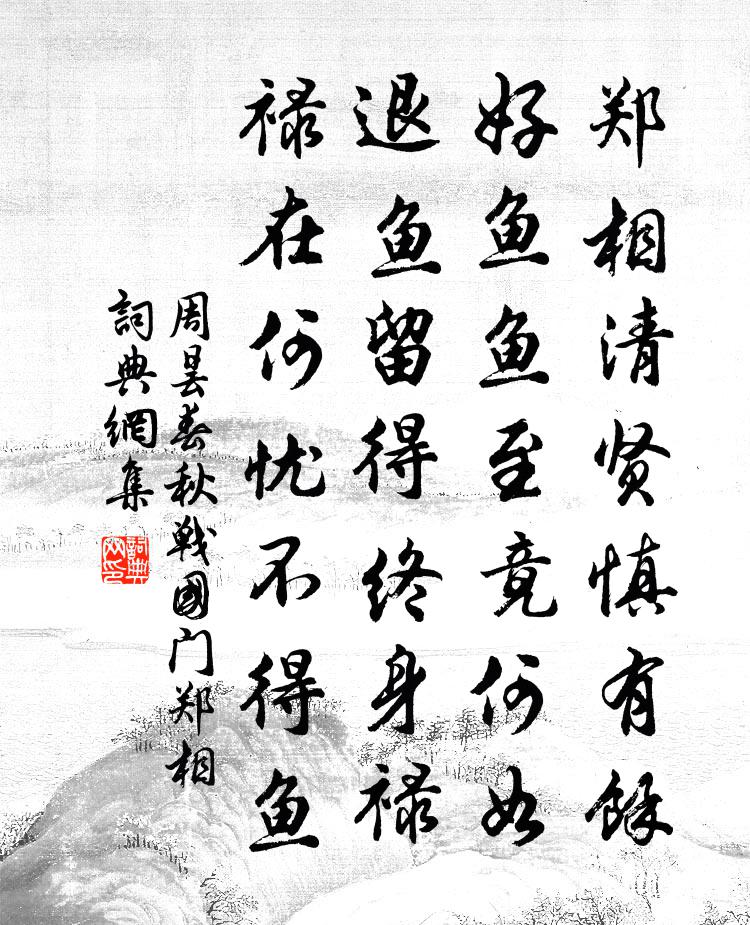 郑相清贤慎有馀
好鱼鱼至竟何如
退鱼留得终身禄
禄在何忧不得鱼
周昙春秋戰國门郑相
詞典網集
詞典网印